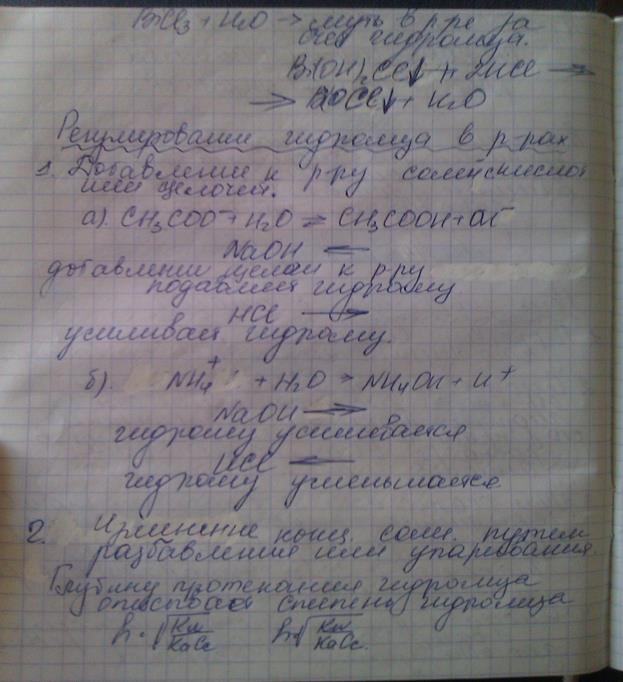 BiCl₃ + H₂O → муть в р-ре за
счёт гидролиза.
Bi(OH)₂Cl↓ + 2HCl →
→ BiOCl↓ + H₂O
Регулирование гидролиза в р-рах
1. Добавление к р-ру солей кислот
или щелочей.
а). CH₃COO⁻ + H₂O ⇌ CH₃COOH + OH⁻
NaOH ←
добавление щелочи к р-ру
подавляет гидролиз
HCl →
усиливает гидролиз.
б). NH₄⁺ + H₂O → NH₄OH + H⁺
NaOH →
гидролиз усиливается
HCl ←
гидролиз уменьшается
2. Изменение конц. соли путём
разбавления или упаривания.
Глубину протекания гидролиза
описывает степень гидролиза
h = √Kw/KaCc h = √Kw/KaCc